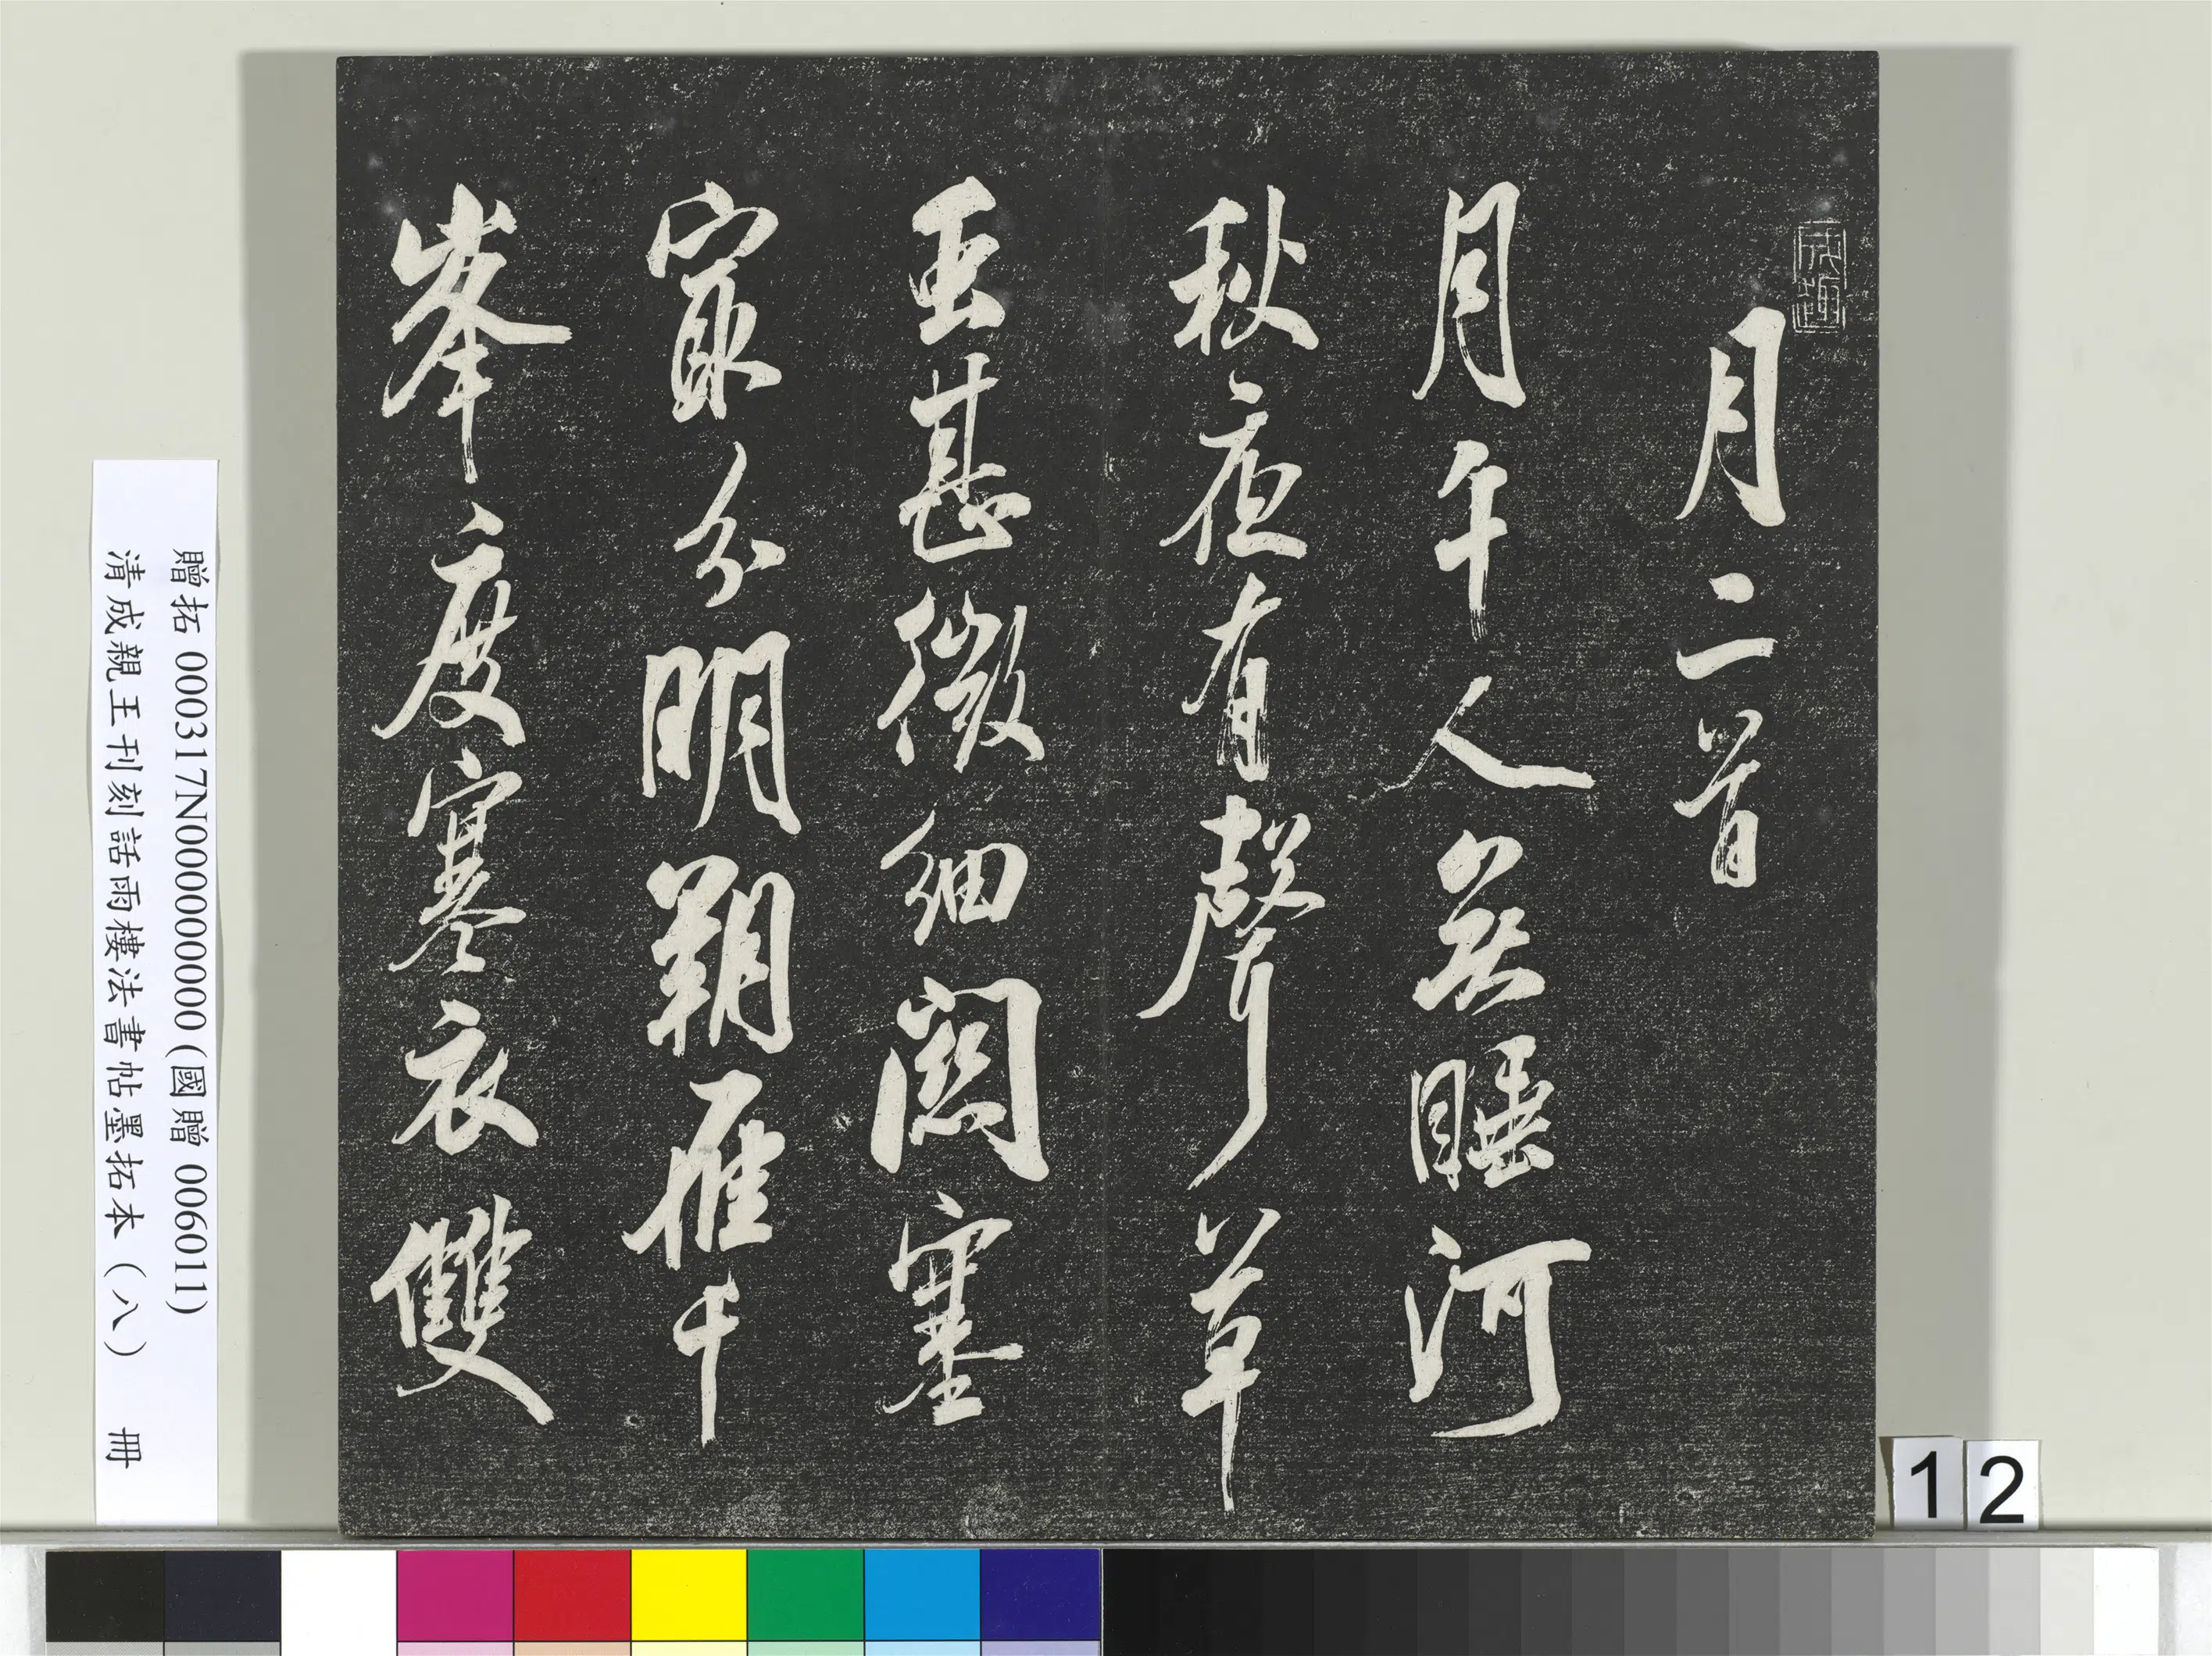 月二首
月午人無睡河
秋夜有聲草
虫甚微細關塞
㝡分明朔雁千
峯度寒衣雙
贈拓 000317N000000000(國贈 006011)
清成親王刊刻話雨樓法書帖墨拓本(八) 冊
12